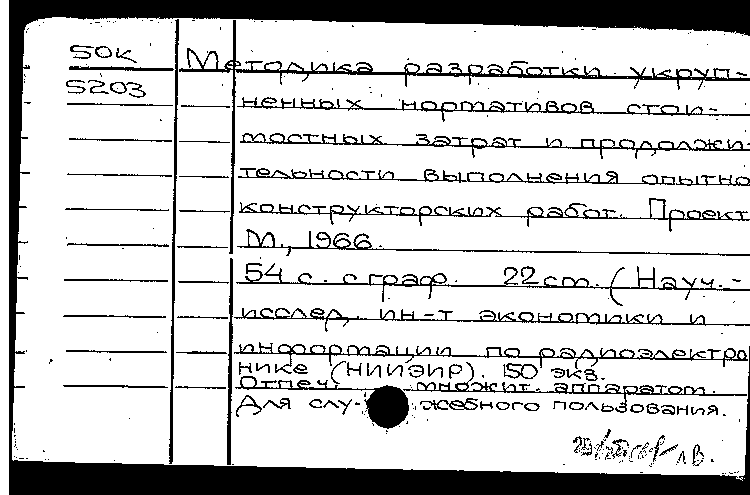 50К Методика разработки укруп-
5203 ненных нормативов стои-
мостных затрат и продолжи-
тельности выполнения опытно
конструкторских работ. Проект
М., 1966.
54 с. с граф. 22 cm. (Науч.-
исслед. ин-т экономики и
информации по радиоэлектро
нике (НИИЭИР). 150 экз.
Отпеч. множит. аппаратом.
Для слу- жебного пользования.
лв.